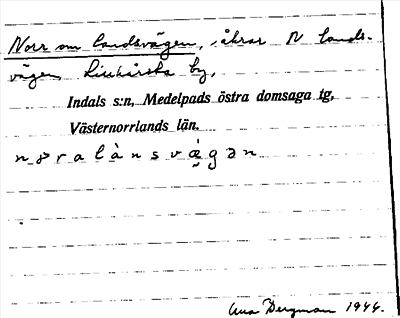 Norr om landsvägen, åkrar N lands-
vägen, Liukårska by,
Indals s:n, Medelpads östra domsaga tg,
Västernorrlands län.
n ɔ r a l à n s v ǽ g ə n
Bergman 1946.